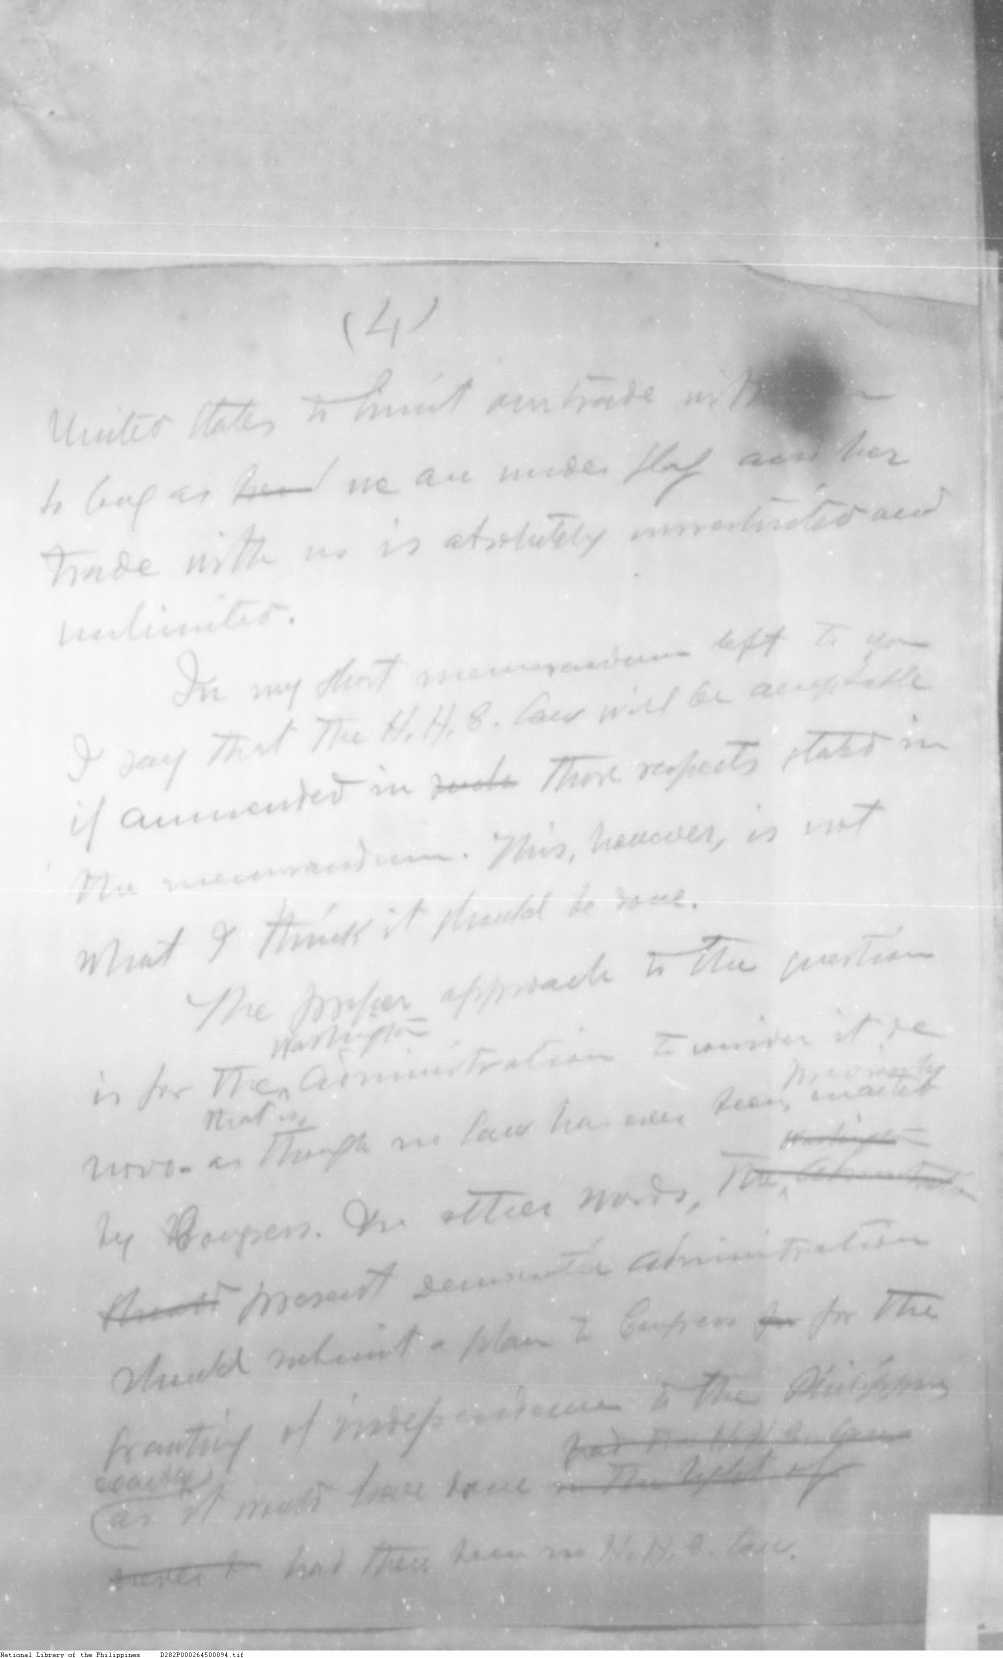 (4)
United States to limit our trade with
so long as her we are under flag and her
trade with us is absolutely unrestricted and
unlimited.
In my short memorandum left to you
I say that the H. H. C. law will be acceptable
if ammended in such those respects stated in
the memorandum. This, however, is not
what I think it should be done.
The proper approach to the question
Washington
is for the Administration to consider it de
that is, previously
novo - as though no law has ever been enacted
Washington
by Congress. In other words, the Administration
should present democratic administration
should submit a plan to Congress for for the
granting of independence to the Philippines
exactly had the H. H. C. law
as it would have done in the light of
never been had there been no H. H. C. law.
National Library of the Philippines D282P000264500094.tif